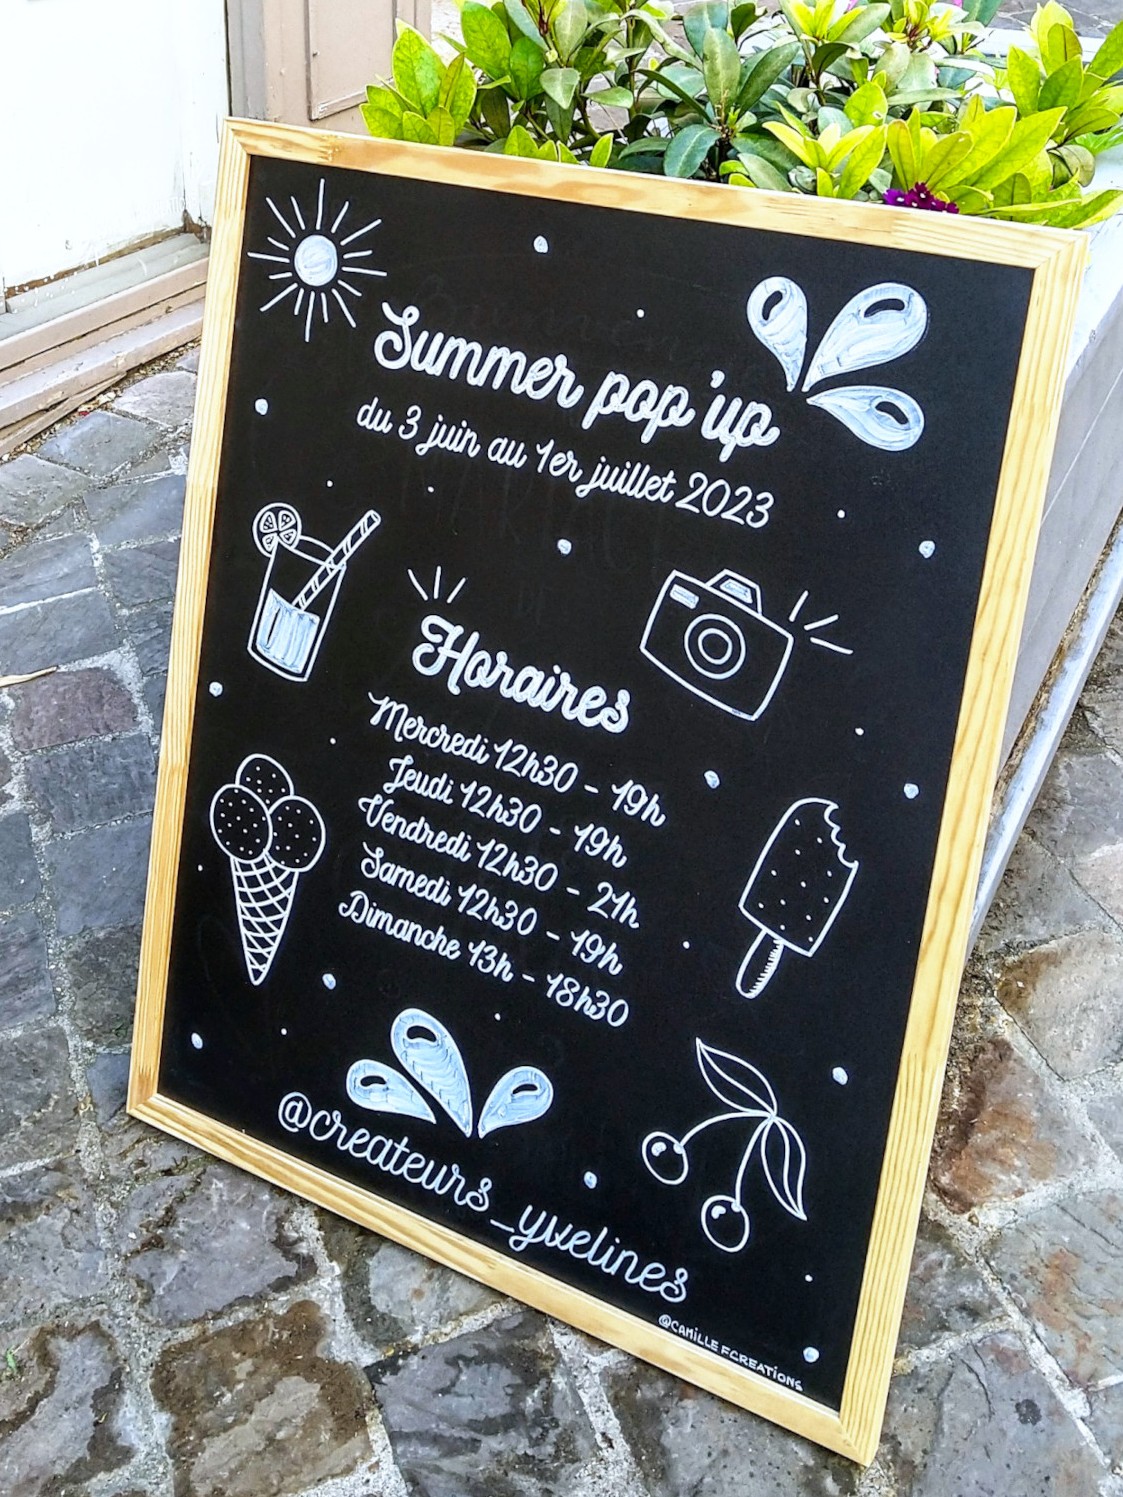 Summer pop'up
du 3 juin au 1er juillet 2023
Horaires
Mercredi 12h30 - 19h
Jeudi 12h30 - 19h
Vendredi 12h30 - 21h
Samedi 12h30 - 19h
Dimanche 13h - 18h30
@createurs_yvelines
@CAMiLLE FCREATiONS